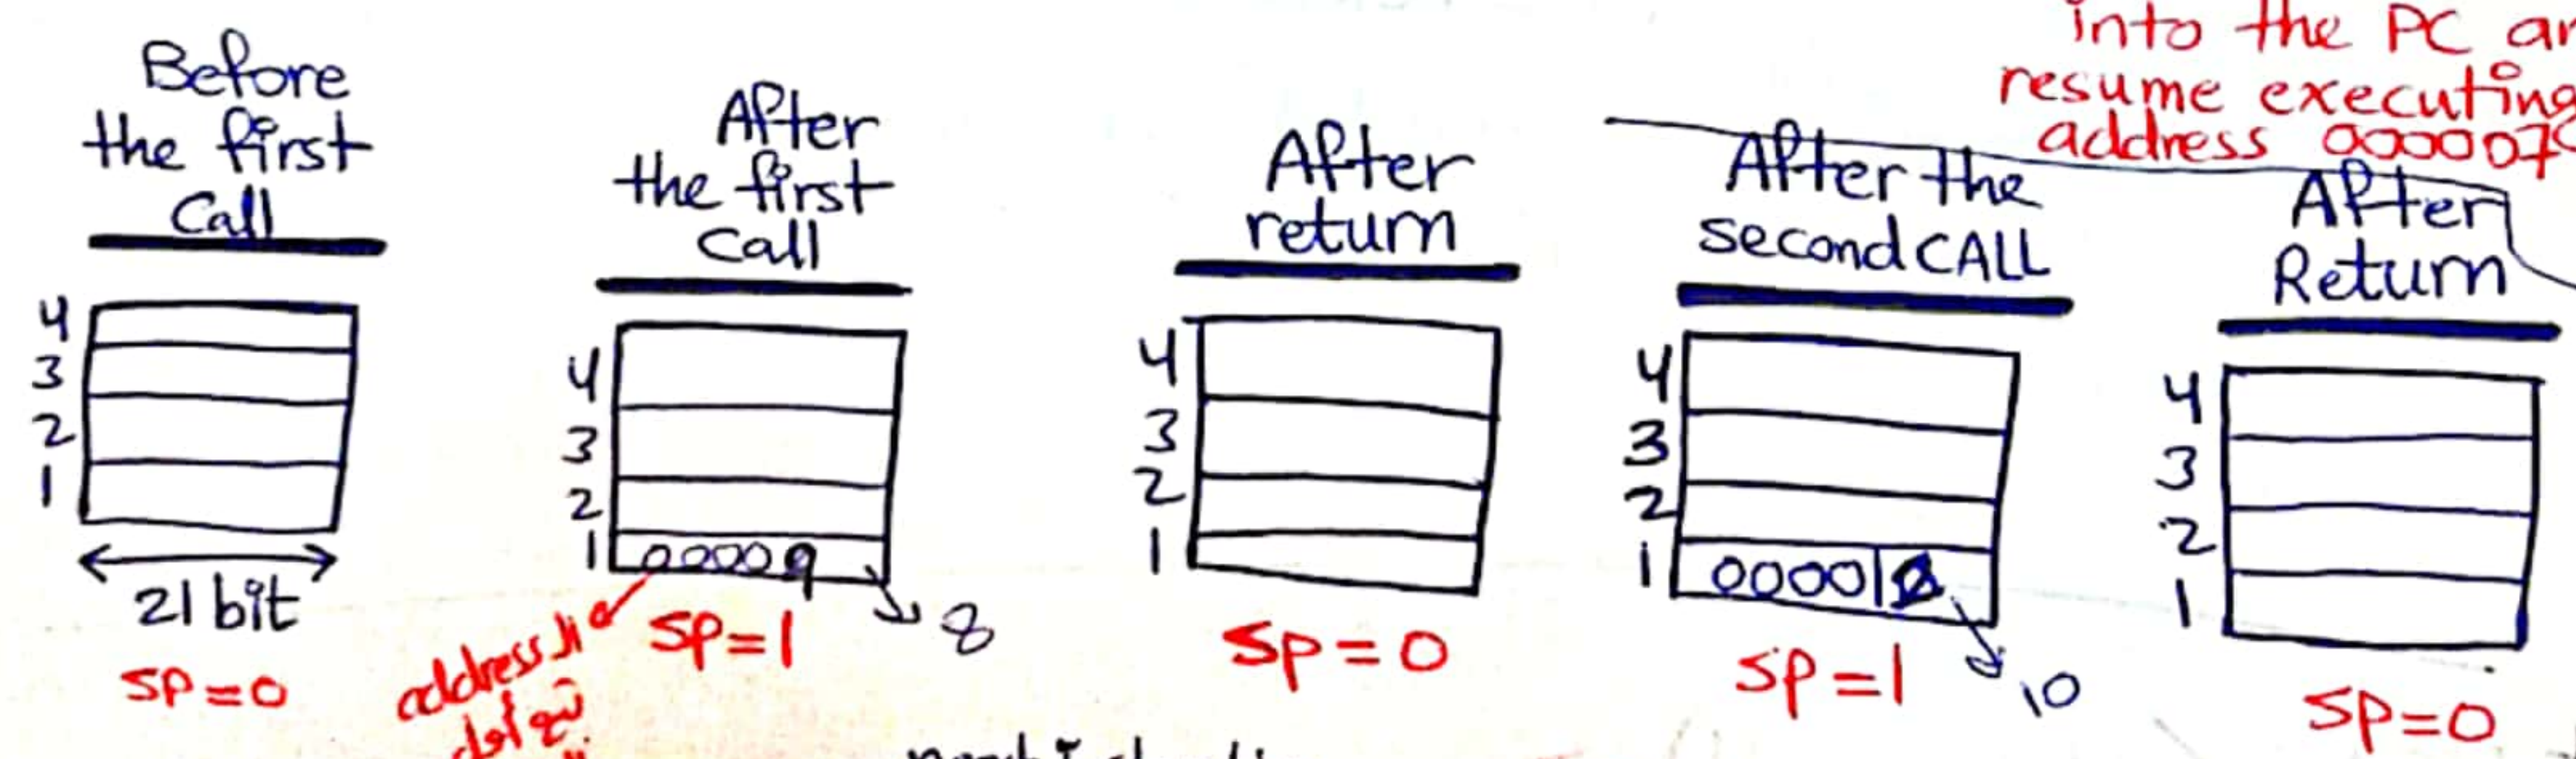 into the PC
resume executing
address 000007
Before
the first
Call
4
3
2
1
21 bit
SP=0
After
the first
Call
4
3
2
1 00009
8
SP=1
address ال
After
return
4
3
2
1
SP=0
After the
second CALL
4
3
2
1 00001
10
SP=1
After
Return
4
3
2
1
SP=0